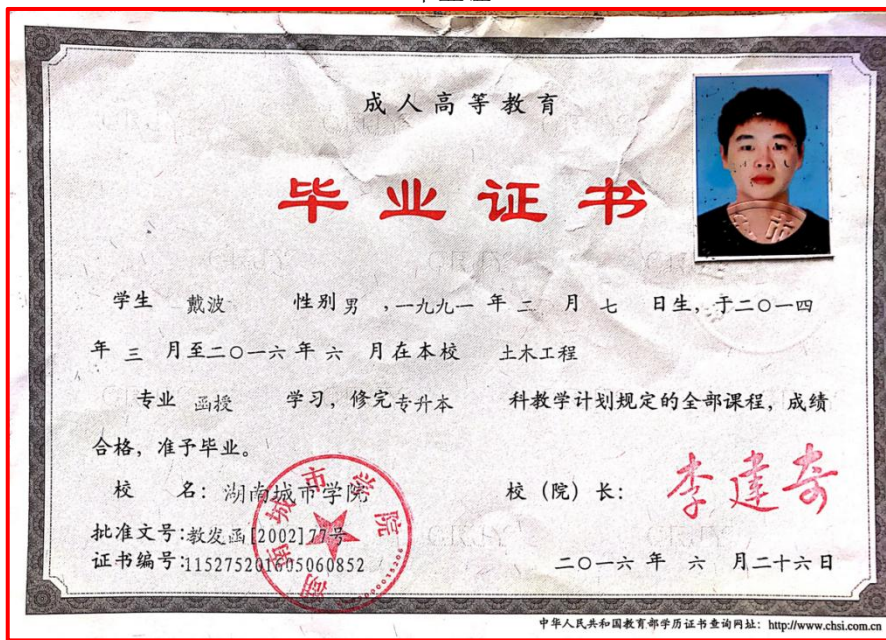 成人高等教育
毕业证书
学生 戴波 性别 男 ,一九九一 年 二 月 七 日生, 于二〇一四
年 三 月至二〇一六 年 六 月在本校 土木工程
专业 函授 学习, 修完 专升本 科教学计划规定的全部课程, 成绩
合格, 准予毕业。
校 名: 湖南城市学院 校 (院) 长: 李建奇
批准文号:教发函[2002]77号
证书编号:115275201605060852 二〇一六 年 六 月二十六日
湖南城市学院
中华人民共和国教育部学历证书查询网址: http://www.chsi.com.cn